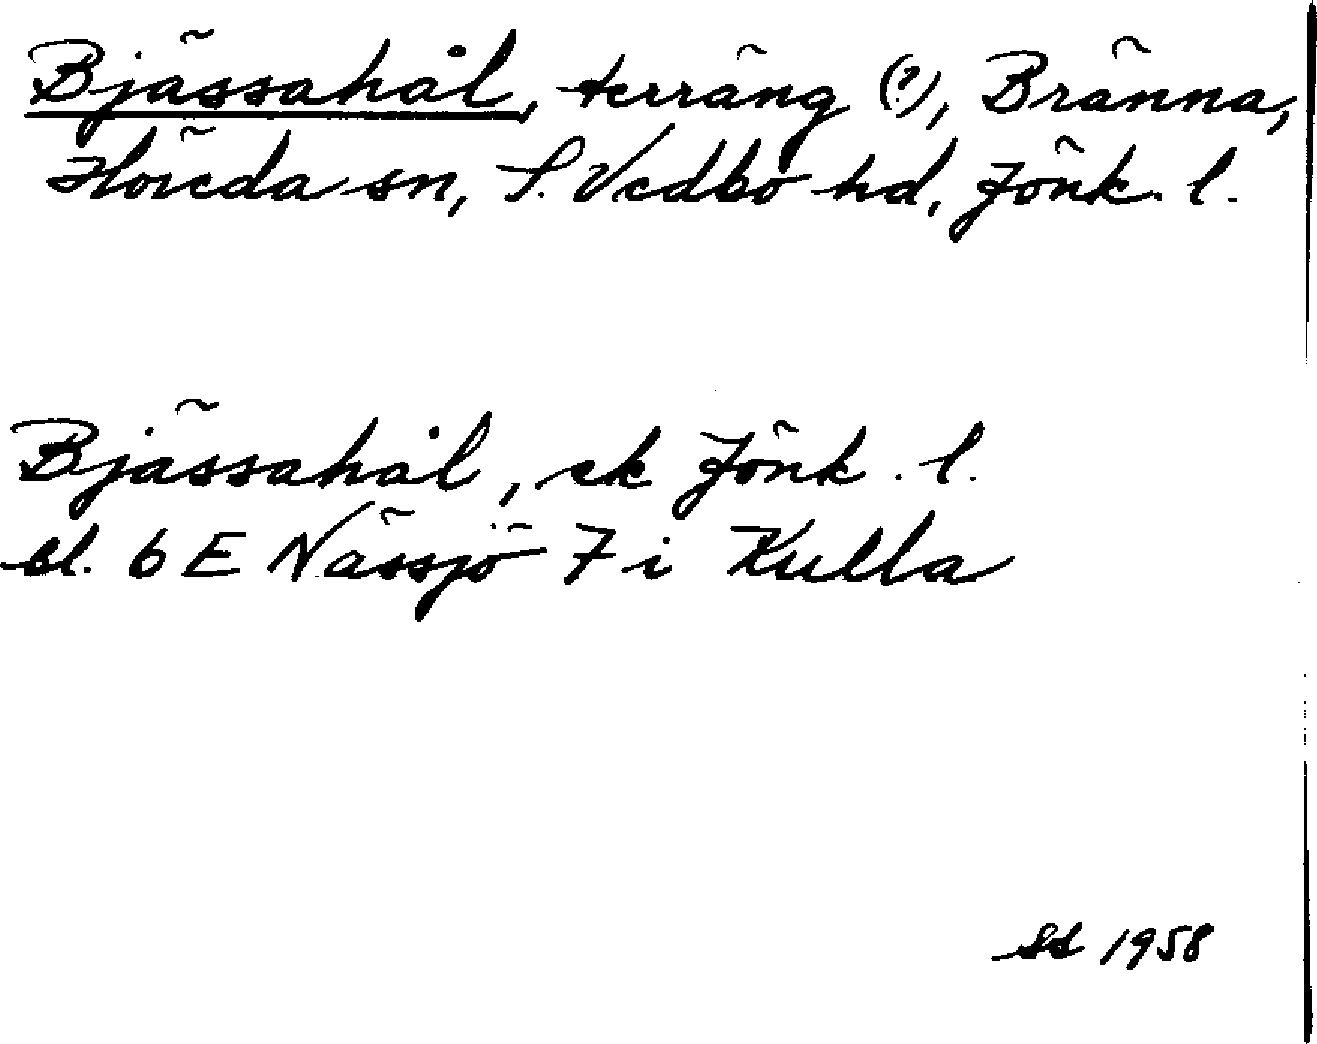 Bjässahål, terräng (?), Bränna,
Flöieda sn, S. Vedbo hd, Jönk. l.
Bjässahål, ek Jönk. l.
bl. 6 E Nässjö 7 i Kulla
SS 1958